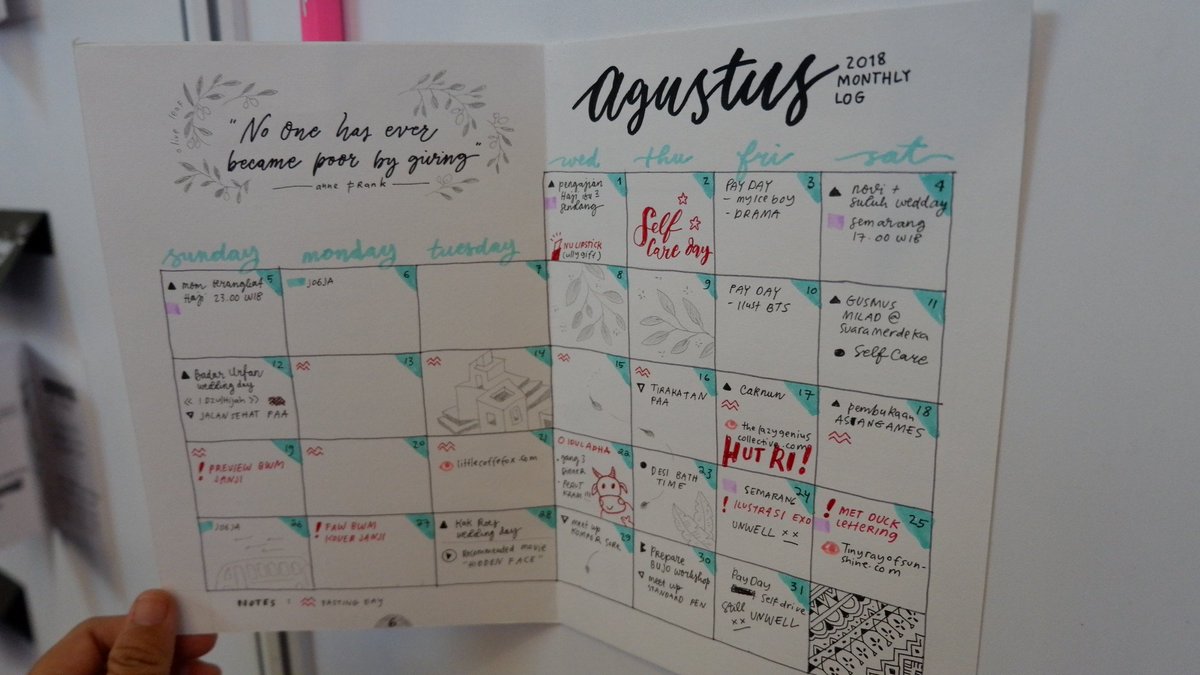 "No one has ever
became poor by giving"
anne frank
Agustus
2018
MONTHLY
LOG
sunday monday tuesday wed thu fri sat
1
pengajian
Haji
NU LIPSTICK
2
Self
Care day
3
PAY DAY
- my ice boy
- DRAMA
4
novi +
suluh wedday
semarang
17.00 WIB
5
mom berangkat
Haji 23.00 WIB
6
JOGJA
7
8
9
10
PAY DAY
- ilust BTS
11
GUSMUS
MILAD @
suaramerdeka
Self Care
12
Badar Urfan
wedding day
<< 1 Dzulhijah >>
JALAN SEHAT PAA
13
14
15
16
TIRAKATAN
PAA
17
Caknun
thelazygenius
collective.com
HUT RI!
18
pembukaan
ASIANGAMES
19
! PREVIEW BWM
JANJI
20
21
littlecoffefox.com
22
IDULADHA
- PERUT
KRAM !!!
23
DESI BATH
TIME
24
SEMARANG
! ILUSTRASI EXO
UNWELL xx
25
! MET DUCK
Lettering
Tinyrayofsun-
shine.com
26
JOGJA
27
! FAW BWM
KOVER JANJI
28
wedding day
Recommended movie
"HIDDEN FACE"
29
meet up
30
Prepare
BUJO workshop
meet up
STANDARD PEN
31
PayDay
self drive
still UNWELL
xx
NOTES : FASTING DAY
6